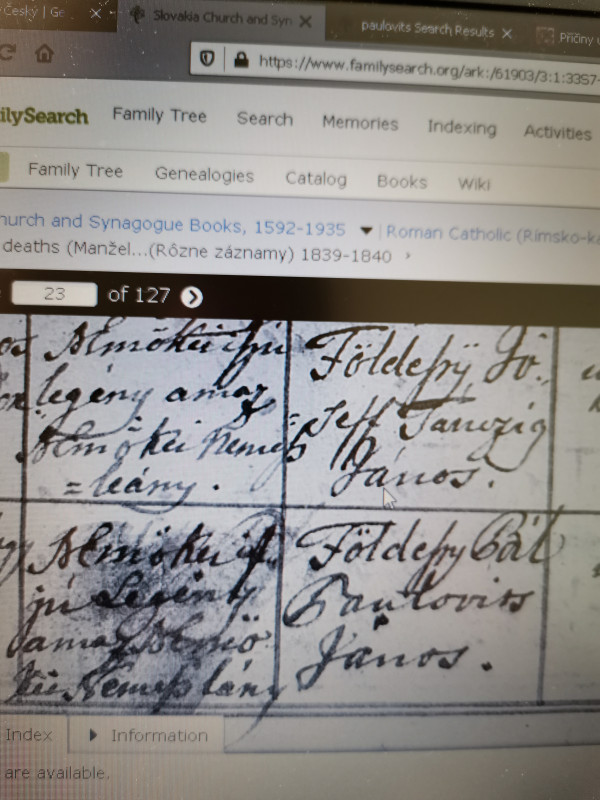 Český | Ge
Slovakia Church and Syn
paulovits Search Results
Příčiny u
https://www.familysearch.org/ark:/61903/3:1:33S7-
ilySearch
Family Tree
Search
Memories
Indexing
Activities
Family Tree
Genealogies
Catalog
Books
Wiki
hurch and Synagogue Books, 1592-1935
Roman Catholic (Rímsko-ka
deaths (Manžel...(Rôzne záznamy) 1839-1840
23 of 127
Almőkei ifjú
legény amaz
Almőkei Nemeß
=leány.
Földeßÿ Jó
=seff
János.
Almőkei if
jú Legény
amaz Almő
kei Nemeß lány
Földeßy Pál
Paulovits
János.
Index
Information
are available.